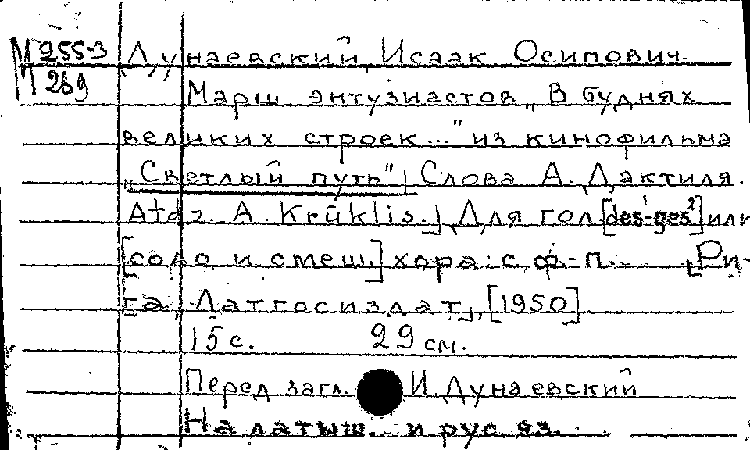 М 255-3 Дунаевский, Исаак Осипович
П 269
Марш энтузиастов „В буднях
великих строек..." из кинофильма
„Светлый путь" [Слова А. Дактиля.
Atdz. A. Krūklis.] Для гол. [des¹-ges²] или
[соло и смеш.] хора с ф-п. [Ри-
га, Латгосиздат], [1950]
15 с. 29 см.
Перед загл. И. Дунаевский
На латыш. и рус яз.